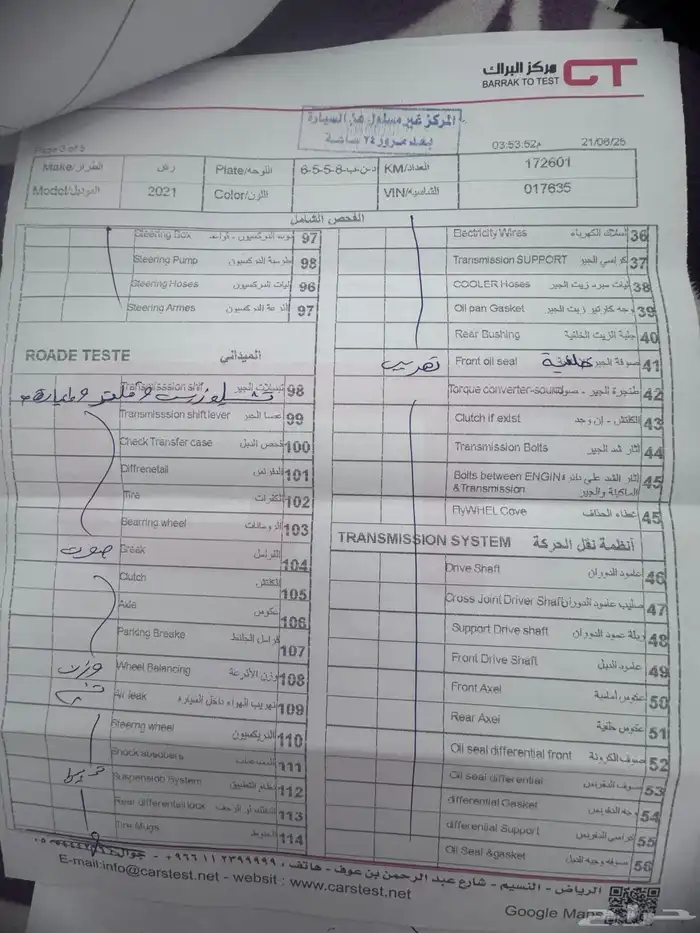 مركز البراك
BARRAK TO TEST
CT
المركز غير مسئول عن السيارة
بعد مرور ٢٤ ساعة
Page 3 of 5
03:53:52م 21/06/25
Make/الطراز Plate/اللوحة 6-5-5-8 KM/العداد 172601
Model/الموديل 2021 Color/اللون VIN/الشاسية 017635
الفحص الشامل
Steering Box 97
Steering Pump 98
Steering Hoses 96
Steering Armes 97
ROADE TESTE الميداني
Transmisssion shif تبديلات الجير 98
Transmisssion shift lever عصا الجير 99
Check Transfer case فحص الدبل 100
Diffrenetail 101
Tire الكفرات 102
Bearring wheel 103
صوت Break الفرامل 104
Clutch 105
Axle عكوس 106
Parking Breake فرامل الجلنط 107
وزن Wheel Balancing وزن الأذرعة 108
Air leak تهريب الهواء داخل السياره 109
Steerng wheel الدريكسيون 110
Shock absobers 111
Suspension System نظام التعليق 112
Rear differential lock 113
Tire Mugs 114
Electricity Wires اسلاك الكهرباء 36
Transmission SUPPORT كراسي الجير 37
COOLER Hoses ليات مبرد زيت الجير 38
Oil pan Gasket وجه كارتير زيت الجير 39
Rear Bushing جلبة الزيت الخلفية 40
تهريب Front oil seal صوفة الجير خلفية 41
Torque converter-sound طنجرة الجير - صوت 42
Clutch if exist الكلتش - إن وجد 43
Transmission Bolts آثار شد الجير 44
Bolts between ENGIN &Transmission 45
FlyWHEL Cove غطاء الحذاف 45
TRANSMISSION SYSTEM أنظمة نقل الحركة
Drive Shaft عامود الدوران 46
Cross Joint Driver Shaft صليب عامود الدوران 47
Support Drive shaft ربلة عمود الدوران 48
Front Drive Shaft عامود الدبل 49
Front Axel عكوس أمامية 50
Rear Axel عكوس خلفية 51
Oil seal differential front صوف الكرونة 52
Oil seal differential صوف الدفريس 53
differential Gasket وجه الدفريس 54
differential Support كراسي الدفريس 55
Oil Seal &gasket صوفه وجيه الدبل 56
الرياض - النسيم - شارع عبد الرحمن بن عوف - هاتف : ٩٦٦١١٢٣٩٩٩٩٩+ - جوال:
E-mail:info@carstest.net - websit : www.carstest.net
Google Maps
حراج